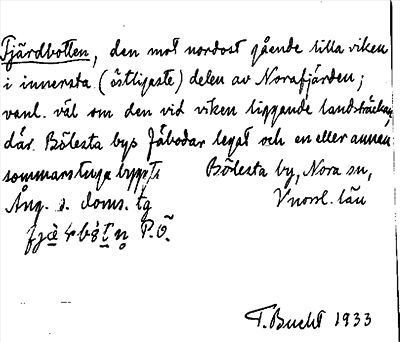 Fjärdbotten, den mot nordost gående lilla viken
i innersta (östligaste) delen av Norafjärden;
vanl. väl om den vid viken liggande landsträckan,
där Bölesta bys fäbodar legat och en eller annan
sommarstuga byggts Bölesta by, Nora sn,
Ång. s. doms. tg Vnorrl. län
P.Ö.
T. Bucht 1933